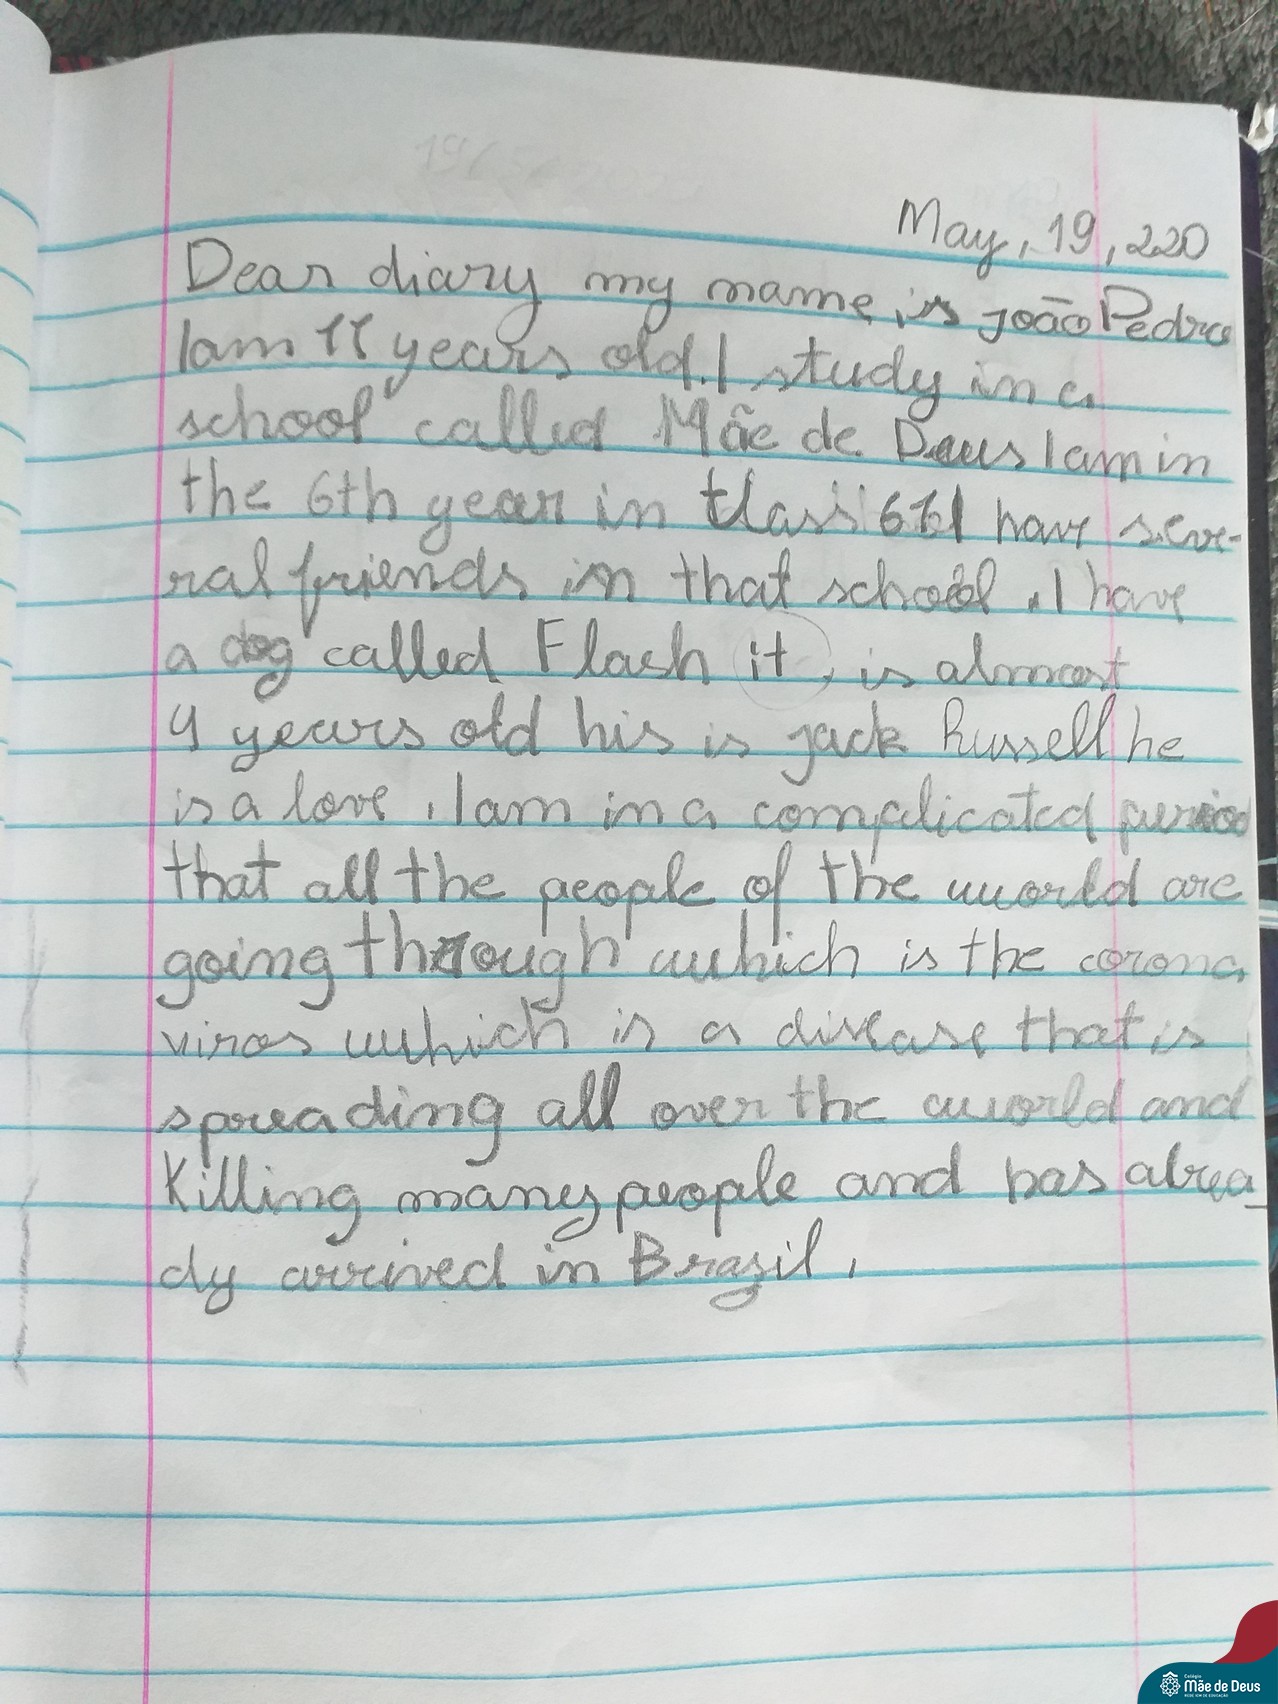 May, 19, 220
Dear diary my name, is João Pedro
I am 11 years old. I study in a
school called Mãe de Deus I am in
the 6th year in class 61 I have seve-
ral friends in that school. I have
a dog called Flash it, is almost
9 years old his is jack Russell he
is a love. I am in a complicated period
that all the people of the world are
going through which is the corona
viros which is a disease that is
spreading all over the world and
Killing many people and has alrea_
dy arrived in Brazil.
Colégio
Mãe de Deus
REDE ICM DE EDUCAÇÃO